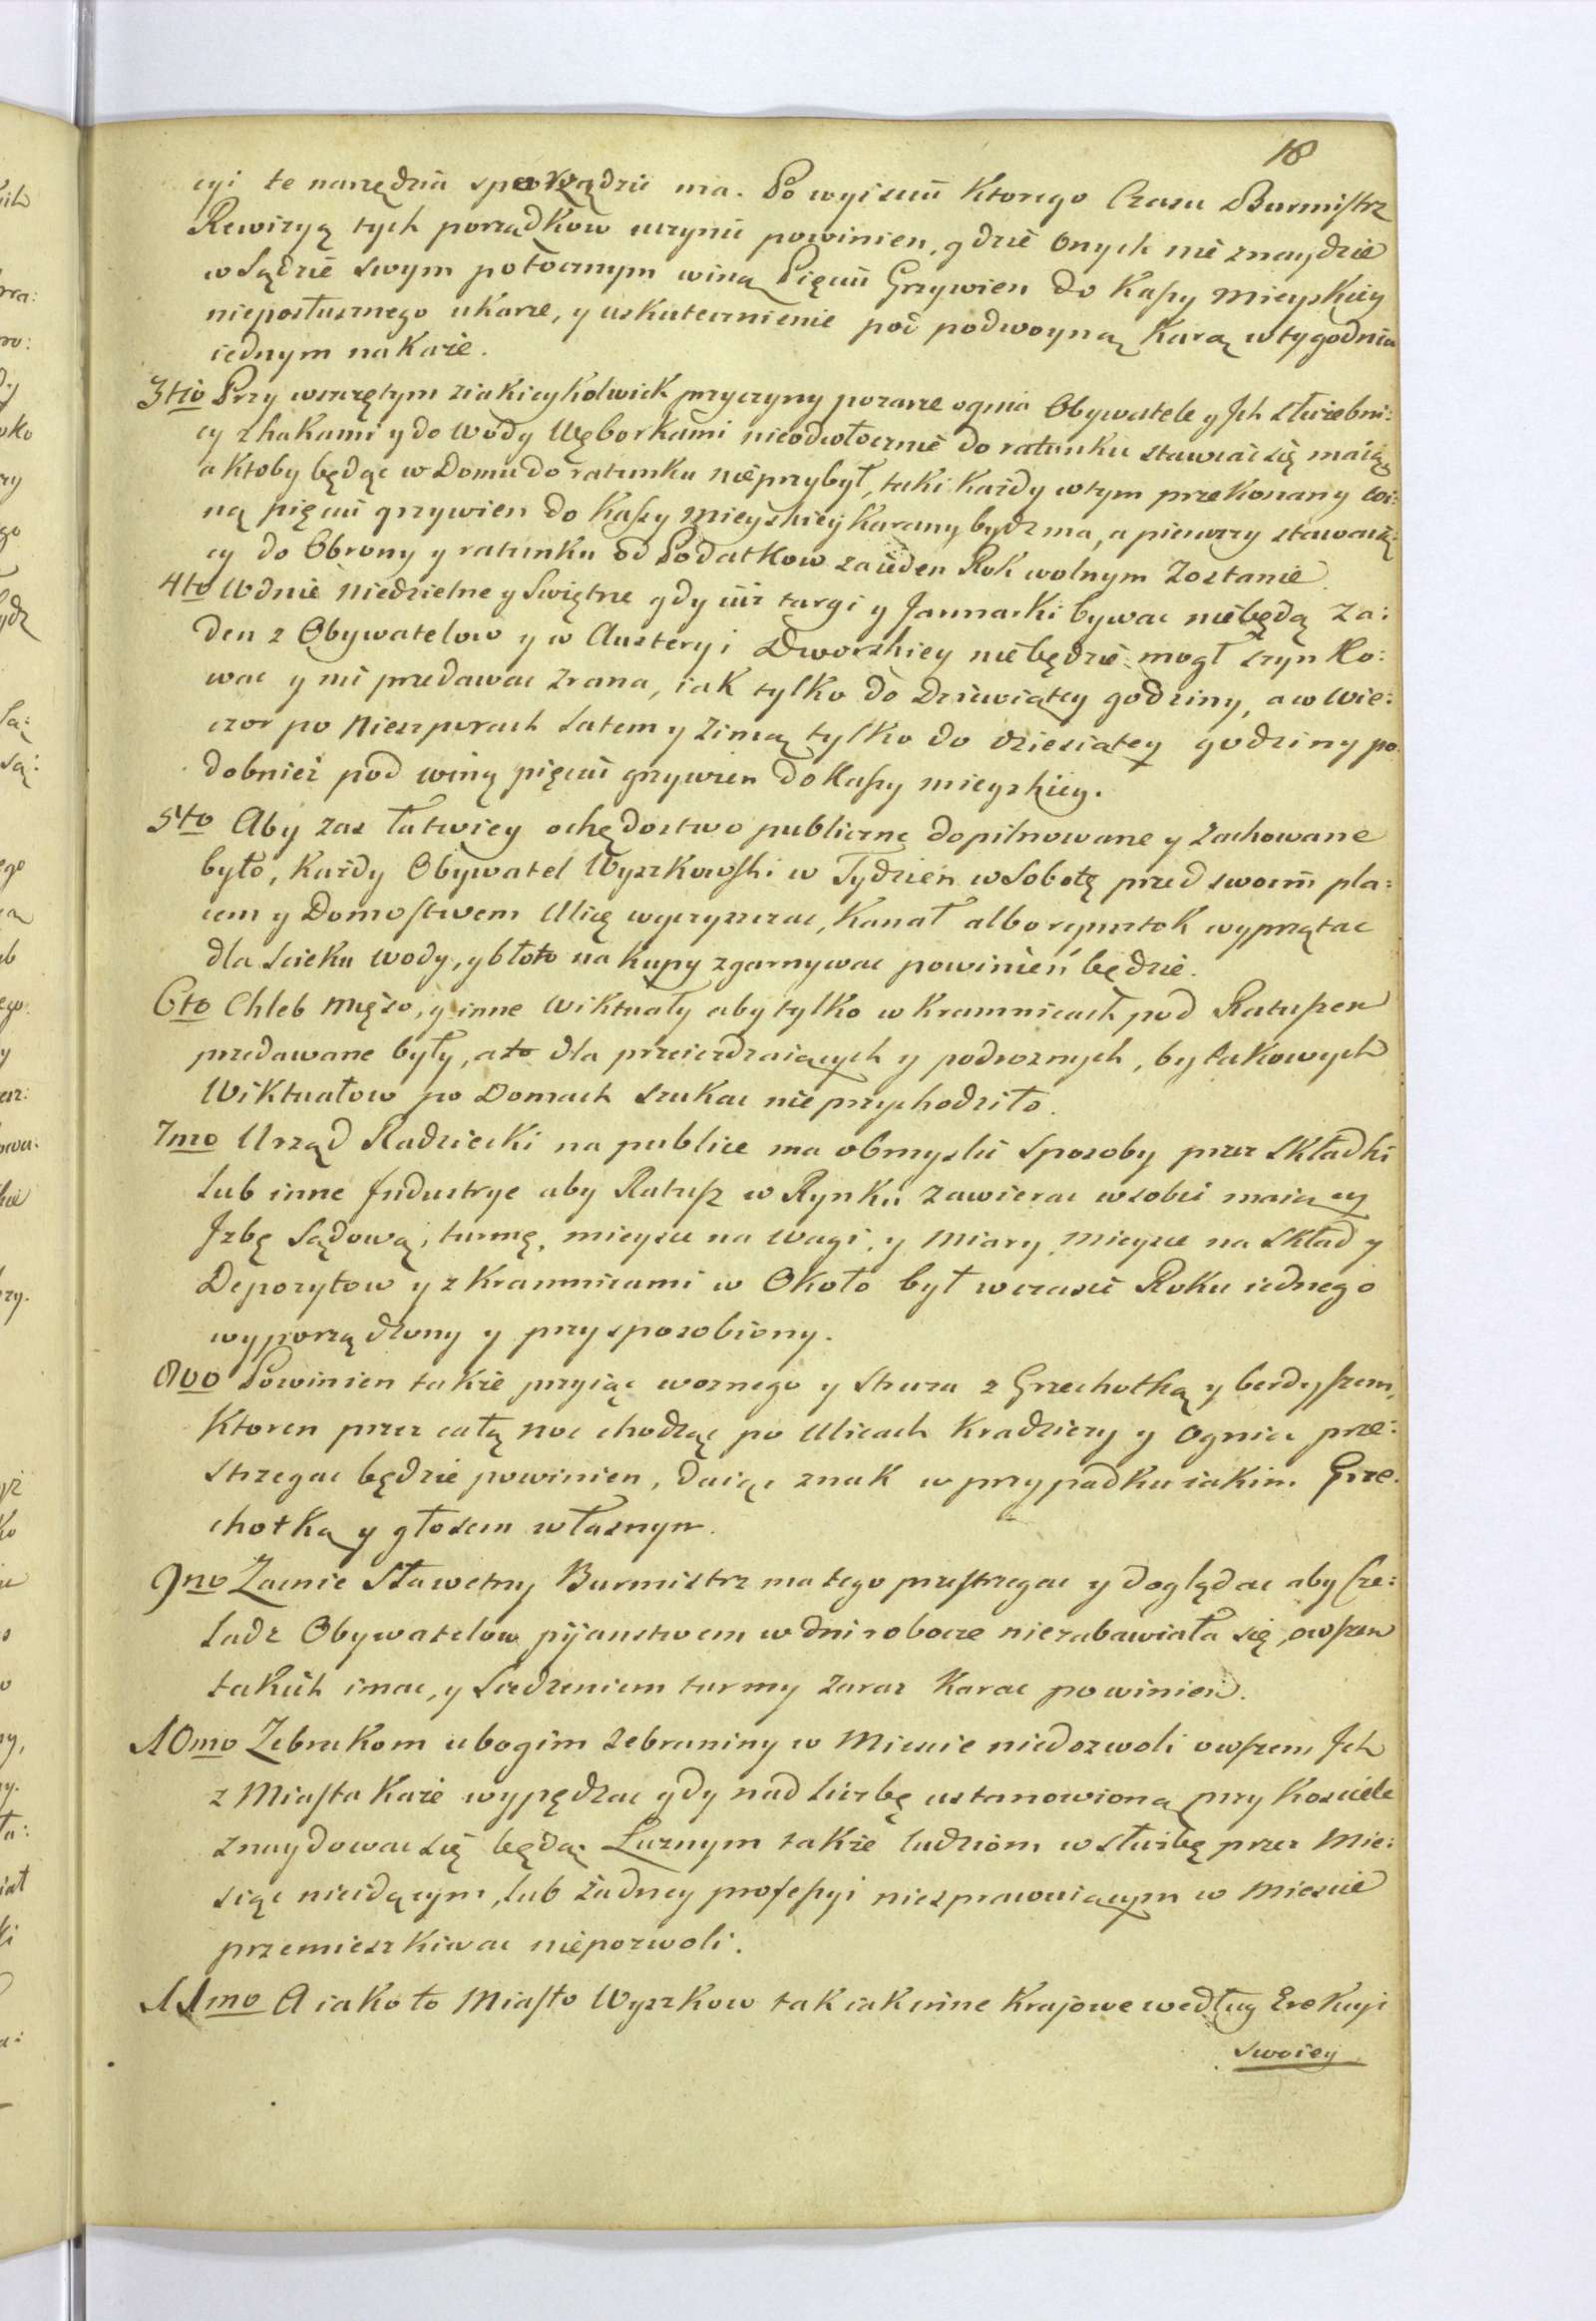 18
cyi te narzędzia sporządzic ma. Po wyisciu Ktorego Czasu Burmistrz
Rewizyą tych porządkow uczynić powinien, gdzie onych nie znaydzie
w Sądzie swym potocznym winą Pięciu Grzywien do Kassy Mieyskiey
nieposłusznego ukarze, y uskutecznienie pod podwoyną Karą w tygodniu
iednym nakaże.
3tio Przy wszczętym ziakieykolwiek przyczyny pozarze ognia Obywatele y Jch słuzebni:
cy z hakami y do Wody Węborkami nieodwłocznie do ratunku stawiać się maią,
a ktoby będąc w Domu do ratunku nieprzybył, taki każdy wtym przekonany wi:
ną pięciu grzywien do Kassy Mieyskiey Karany bydz ma, a pierwszy stawaią:
cy do Obrony y ratunku od Podatkow za ieden Rok wolnym Zostanie.
4to W dnie Niedzielne y Swiętne gdy iuż targi y Jarmarki bywac niebędą ża:
den z Obywatelow y w Austeryi Dworskiey niebędzie mogł szynko:
wac y nic przedawac Zrana, iak tylko do Dziewiątey godziny, a w Wie:
czor po Nieszporach Latem y Zimą tylko do dziesiątey godziny po
dobnież pod winą pięciu grzywien do Kassy mieyskiey.
5to Aby zas łatwiey ochędostwo publiczne dopilnowane y zachowane
było, każdy Obywatel Wyszkowski w Tydzień w Sobotę przed swoim pla:
cem y Domostwem Ulicę wyczyszczac, Kanał albo rynsztok wyprzątac
dla scieku wody, y błoto na kupy zgarnywac powinień będzie.
6to Chleb Mięso, y inne Wiktuały aby tylko w kramnicach pod Ratuszem
przedawane były, a to dla przeiezdzaiących y podroznych, by takowych
Wiktuałow po Domach szukac nie przychodziło.
7mo Urząd Radziecki na publice ma obmyslić sposoby przez składki
lub inne Jndustrye aby Ratusz w Rynku zawierac wsobie maiący
Jzbę Sądową, turmę, mieysce na Wagi, y Miary, mieysce na skład y
Depozytow y z Kramnicami w Około był w czasie Roku iednego
wyporządzony y przysposobiony.
8vo Powinien także przyiąc woznego y Stroza z Grzechotką y berdyszem,
Ktoren przez całą noc chodząc po Ulicach Kradzieży y Ognia prze:
strzegac będzie powinien, daiąc znak w przypadku iakim Grze:
chotką y głosem własnym.
9no Zacnie Sławetny Burmistrz ma tego przestrzegac y doglądac aby Cze:
ladz Obywatelow pijanstwem w dni robocze niezabawiała się, owszem
takich imac, y siedzeniem turmy zaraz karac powinien.
10mo Zebrakom ubogim zebraniny w Miescie niedozwoli owszem Jch
z Miasta Każe wypędzac gdy nad liczbę ustanowioną przy Kosciele
znaydowac się będą. Luznym także ludziom w służbę przez Mie:
siąc nieidącym, lub żadney professyi niesprawuiącym w Miescie
przemieszkiwac niepozwoli.
11mo A iako to Miasto Wyszkow tak iak inne Krajowe według Erekcyi
swoiey